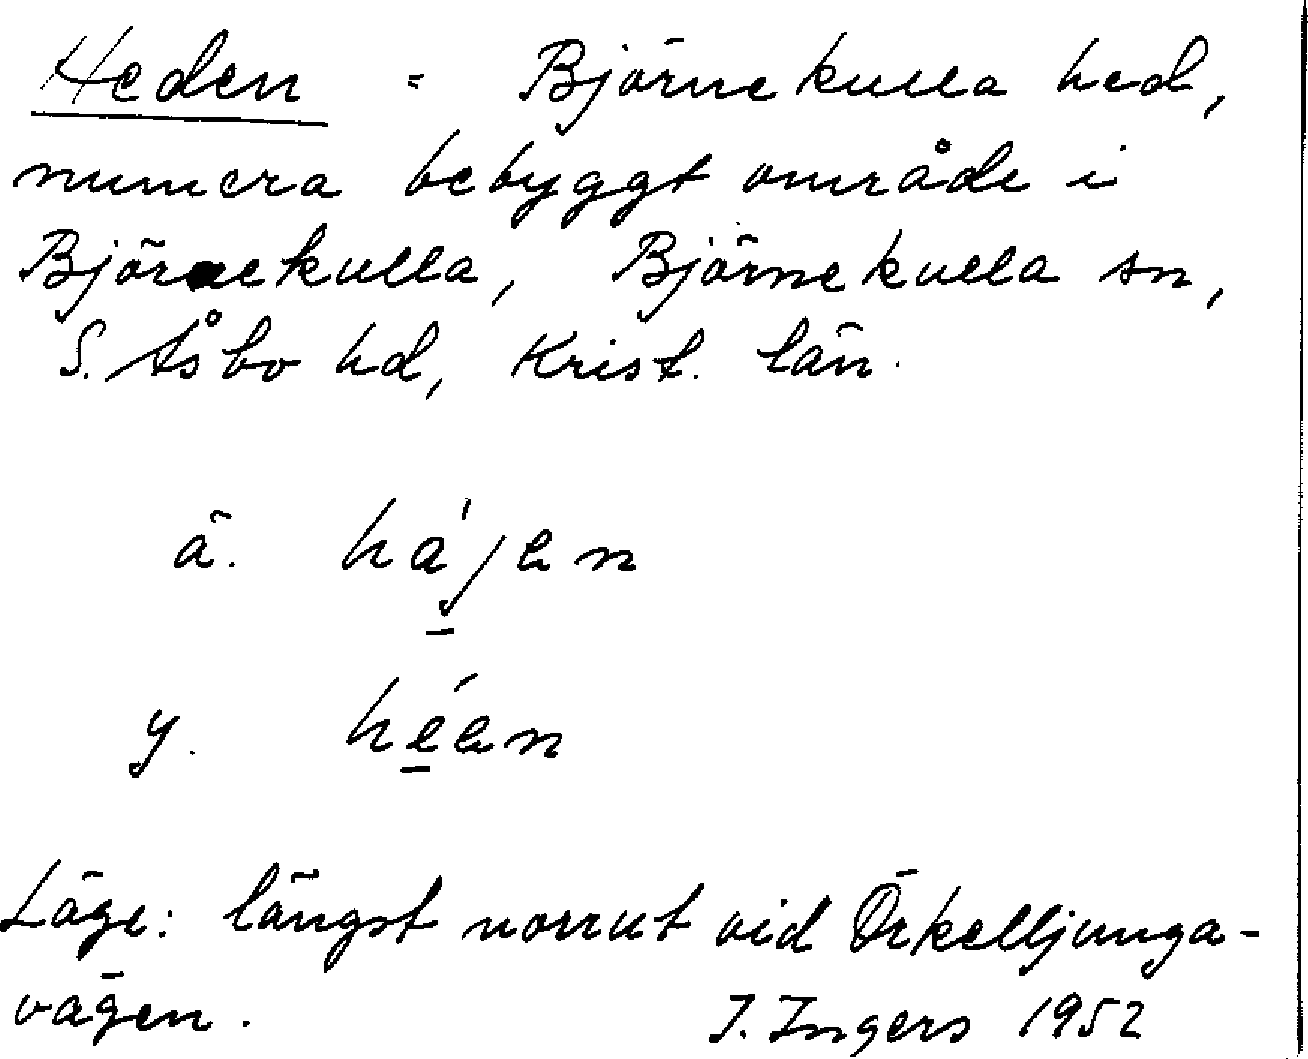 Heden = Björnekulla hed,
numera bebyggt område i
Björnekulla, Björnekulla sn,
S. Åsbo hd, Krist. län.
ä. hájen
y. héen
Läge: längst norrut vid Örkelljunga-
vägen. I. Ingers 1952